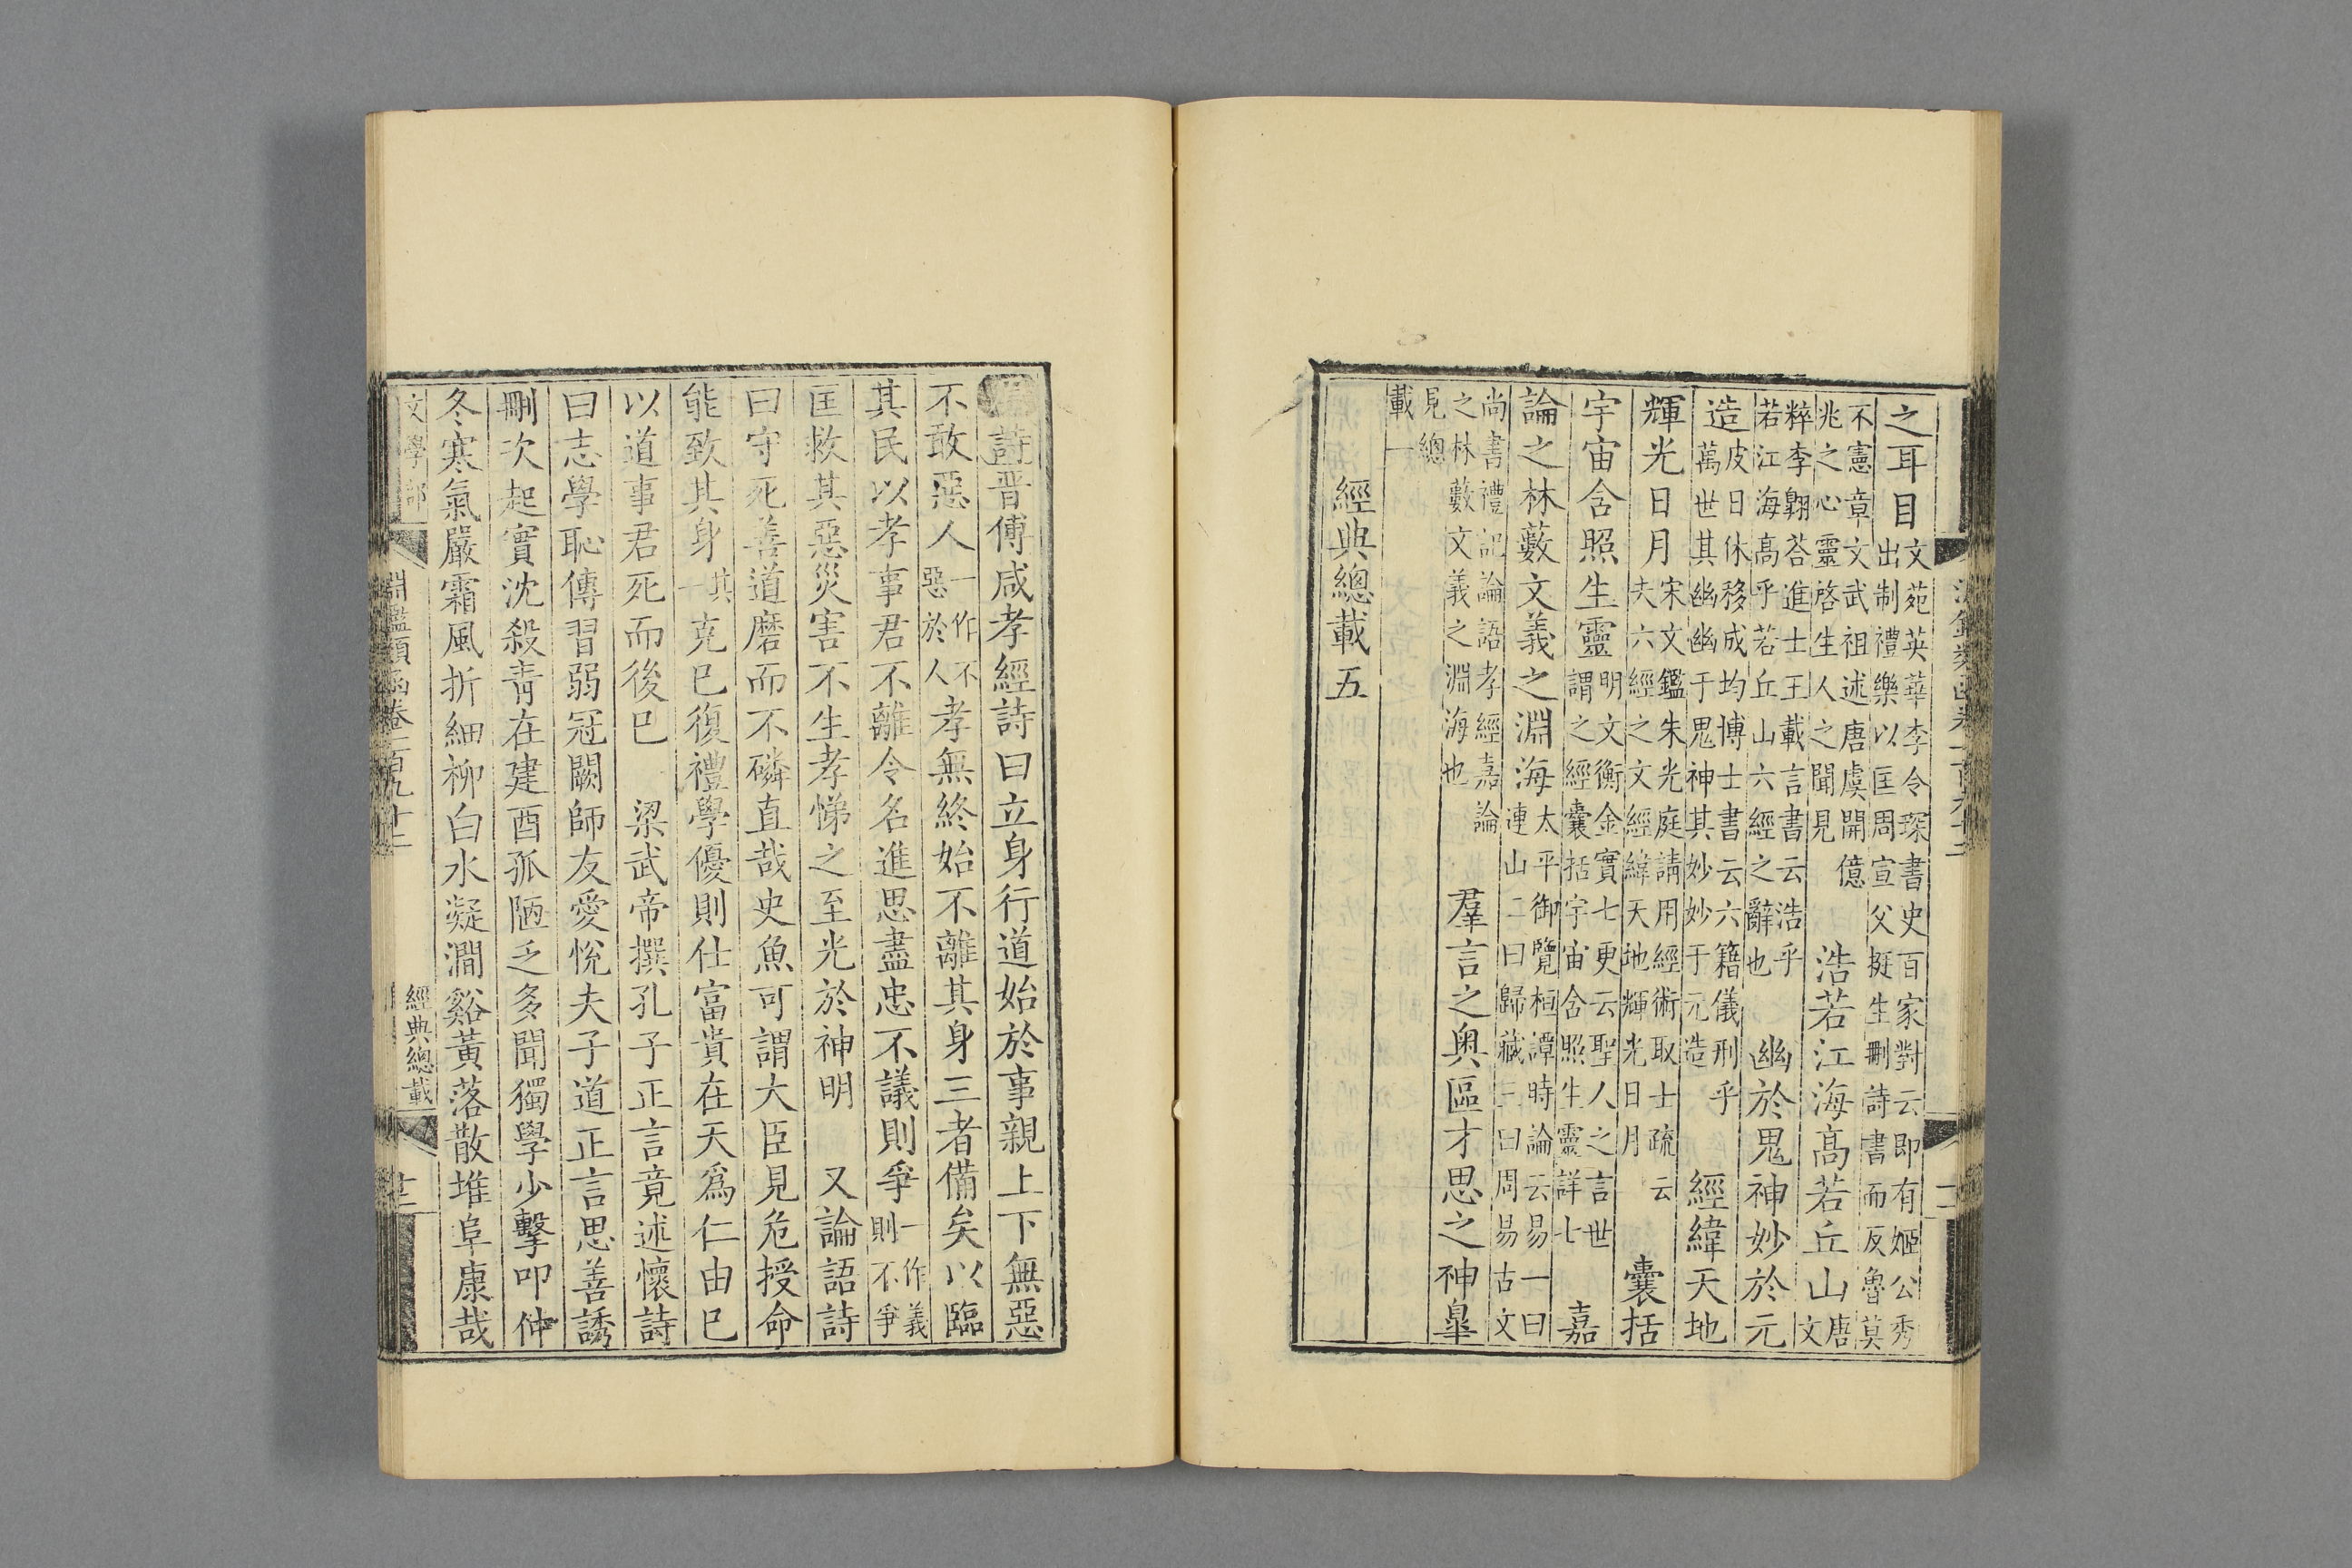 之耳目文苑英華李令琛書史百家對云即有姬公秀出制禮樂以匡周宣父挺生刪詩書而反魯莫
不憲章文武祖述唐虞開億兆之心靈啓生人之聞見浩若江海高若丘山唐文
粹李翺荅進士王載言書云浩乎若江海高乎若丘山六經之辭也幽於鬼神妙於元
造皮日休移成均博士書云六籍儀刑乎萬世其幽幽于鬼神其妙妙于元造經緯天地
輝光日月宋文鑑朱光庭請用經術取士疏云夫六經之文經緯天地輝光日月囊括
宇宙含照生靈明文衡金實七更云聖人之言世謂之經囊括宇宙含照生靈詳七嘉
論之林藪文義之淵海太平御覽桓譚時論云易一曰連山二曰歸藏三曰周易古文
尚書禮記論語孝經嘉論之林藪文義之淵海也羣言之奧區才思之神皐
見總載一
經典總載五
詩晉傅咸孝經詩曰立身行道始於事親上下無惡
不敢惡人一作不惡於人孝無終始不離其身三者備矣以臨
其民以孝事君不離令名進思盡忠不議則爭一作義則不爭
匡救其惡災害不生孝悌之至光於神明 又論語詩
曰守死善道磨而不磷直哉史魚可謂大臣見危授命
能致其身其一克已復禮學優則仕富貴在天爲仁由已
以道事君死而後已 梁武帝撰孔子正言竟述懷詩
曰志學恥傳習弱冠闕師友愛悅夫子道正言思善誘
刪次起實沈殺青在建酉孤陋乏多聞獨學少擊叩仲
冬寒氣嚴霜風折細柳白水凝澗谿黃落散堆阜康哉
文學部 淵鑑類函卷一百九十二 經典總載